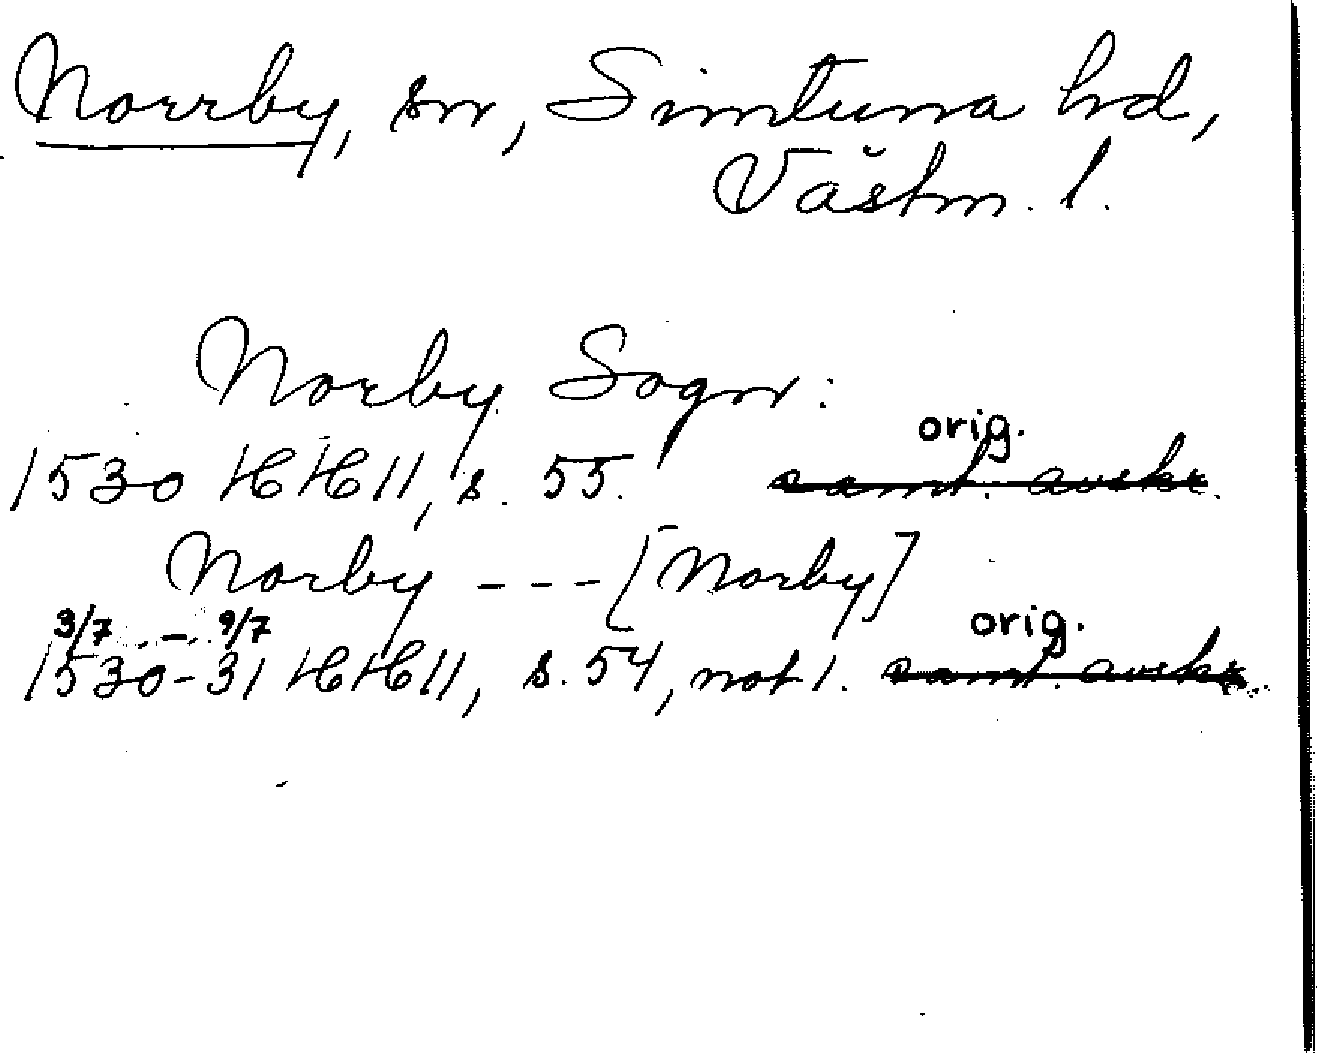 Norrby, sn, Simtuna hd,
Västm. l.
Norby Sogn:
orig.
1530 HH 11, s. 55. samt. avskr.
Norby --- [Norby]
3/7 - 9/7 orig.
1530-31 HH 11, s. 54, not 1. samt. avskr.